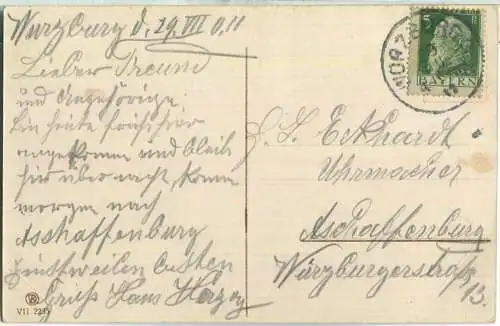 Würzburg d. 29. VII 0.11
Lieber Freund
und Angehörige
Bin heute früh hier
angekomm und bleib
hir über nacht, komm
morgen nach
Aschaffenburg
Einstweilen besten
Gruss Hans
VII. 2235
H. L. Eckhardt
Uhrmacher
Aschaffenburg
Würzburgerstraße
13.
5
BAYERN